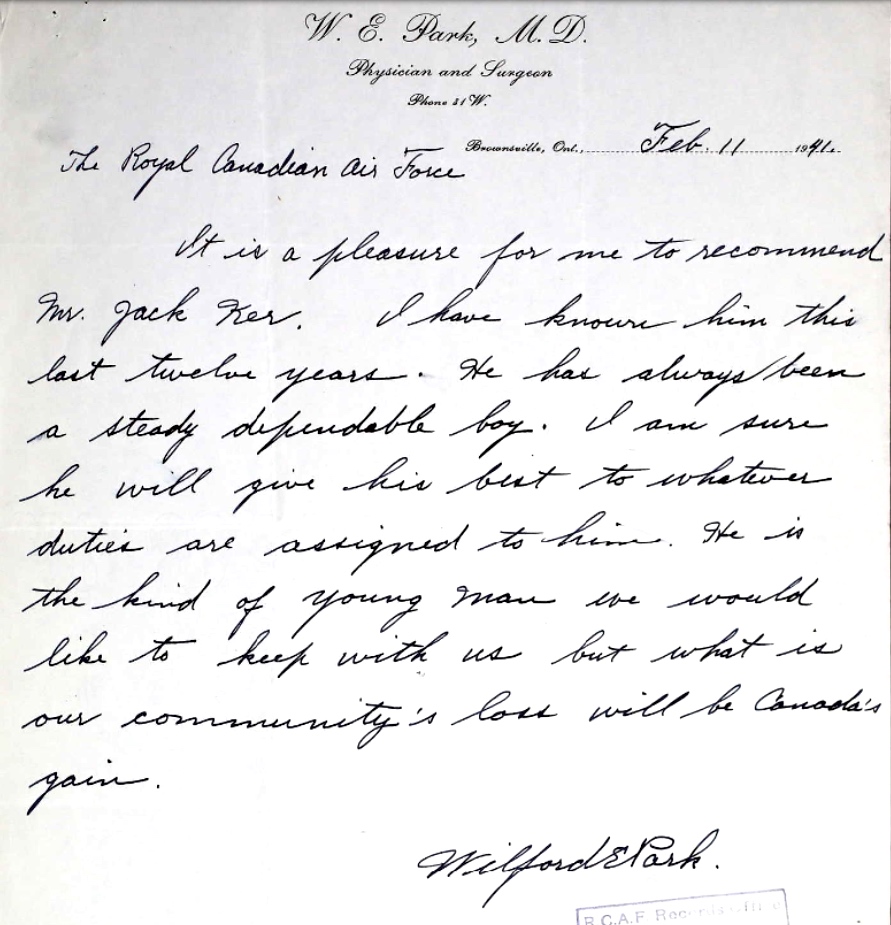 W. E. Park, M. D.
Physician and Surgeon
Phone 31 W.
Brownsville, Ont., Feb. 11 1941.
The Royal Canadian Air Force
It is a pleasure for me to recommend
Mr. Jack Ker. I have known him this
last twelve years. He has always been
a steady dependable boy. I am sure
he will give his best to whatever
duties are assigned to him. He is
the kind of young man we would
like to keep with us but what is
our community's loss will be Canada's
gain.
Wilford E Park.
R.C.A.F. Records Office